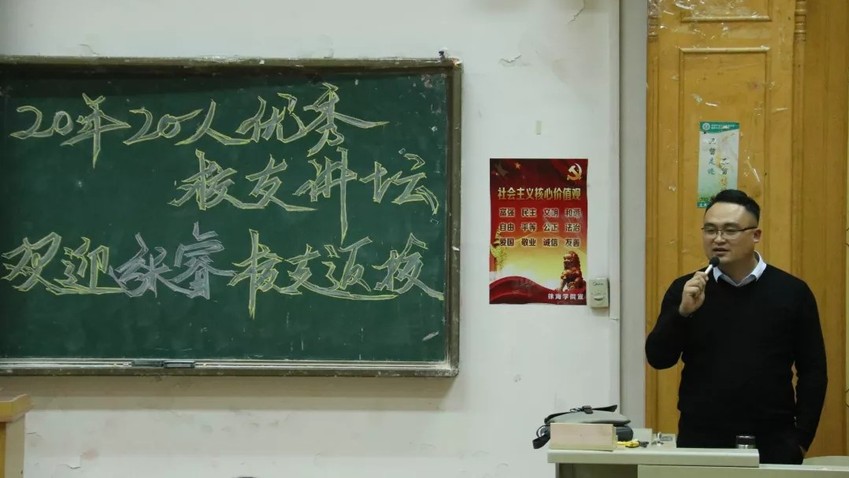 20年20人优秀
校友讲坛
欢迎张睿校友返校
社会主义核心价值观
富强 民主 文明 和谐
自由 平等 公正 法治
爱国 敬业 诚信 友善